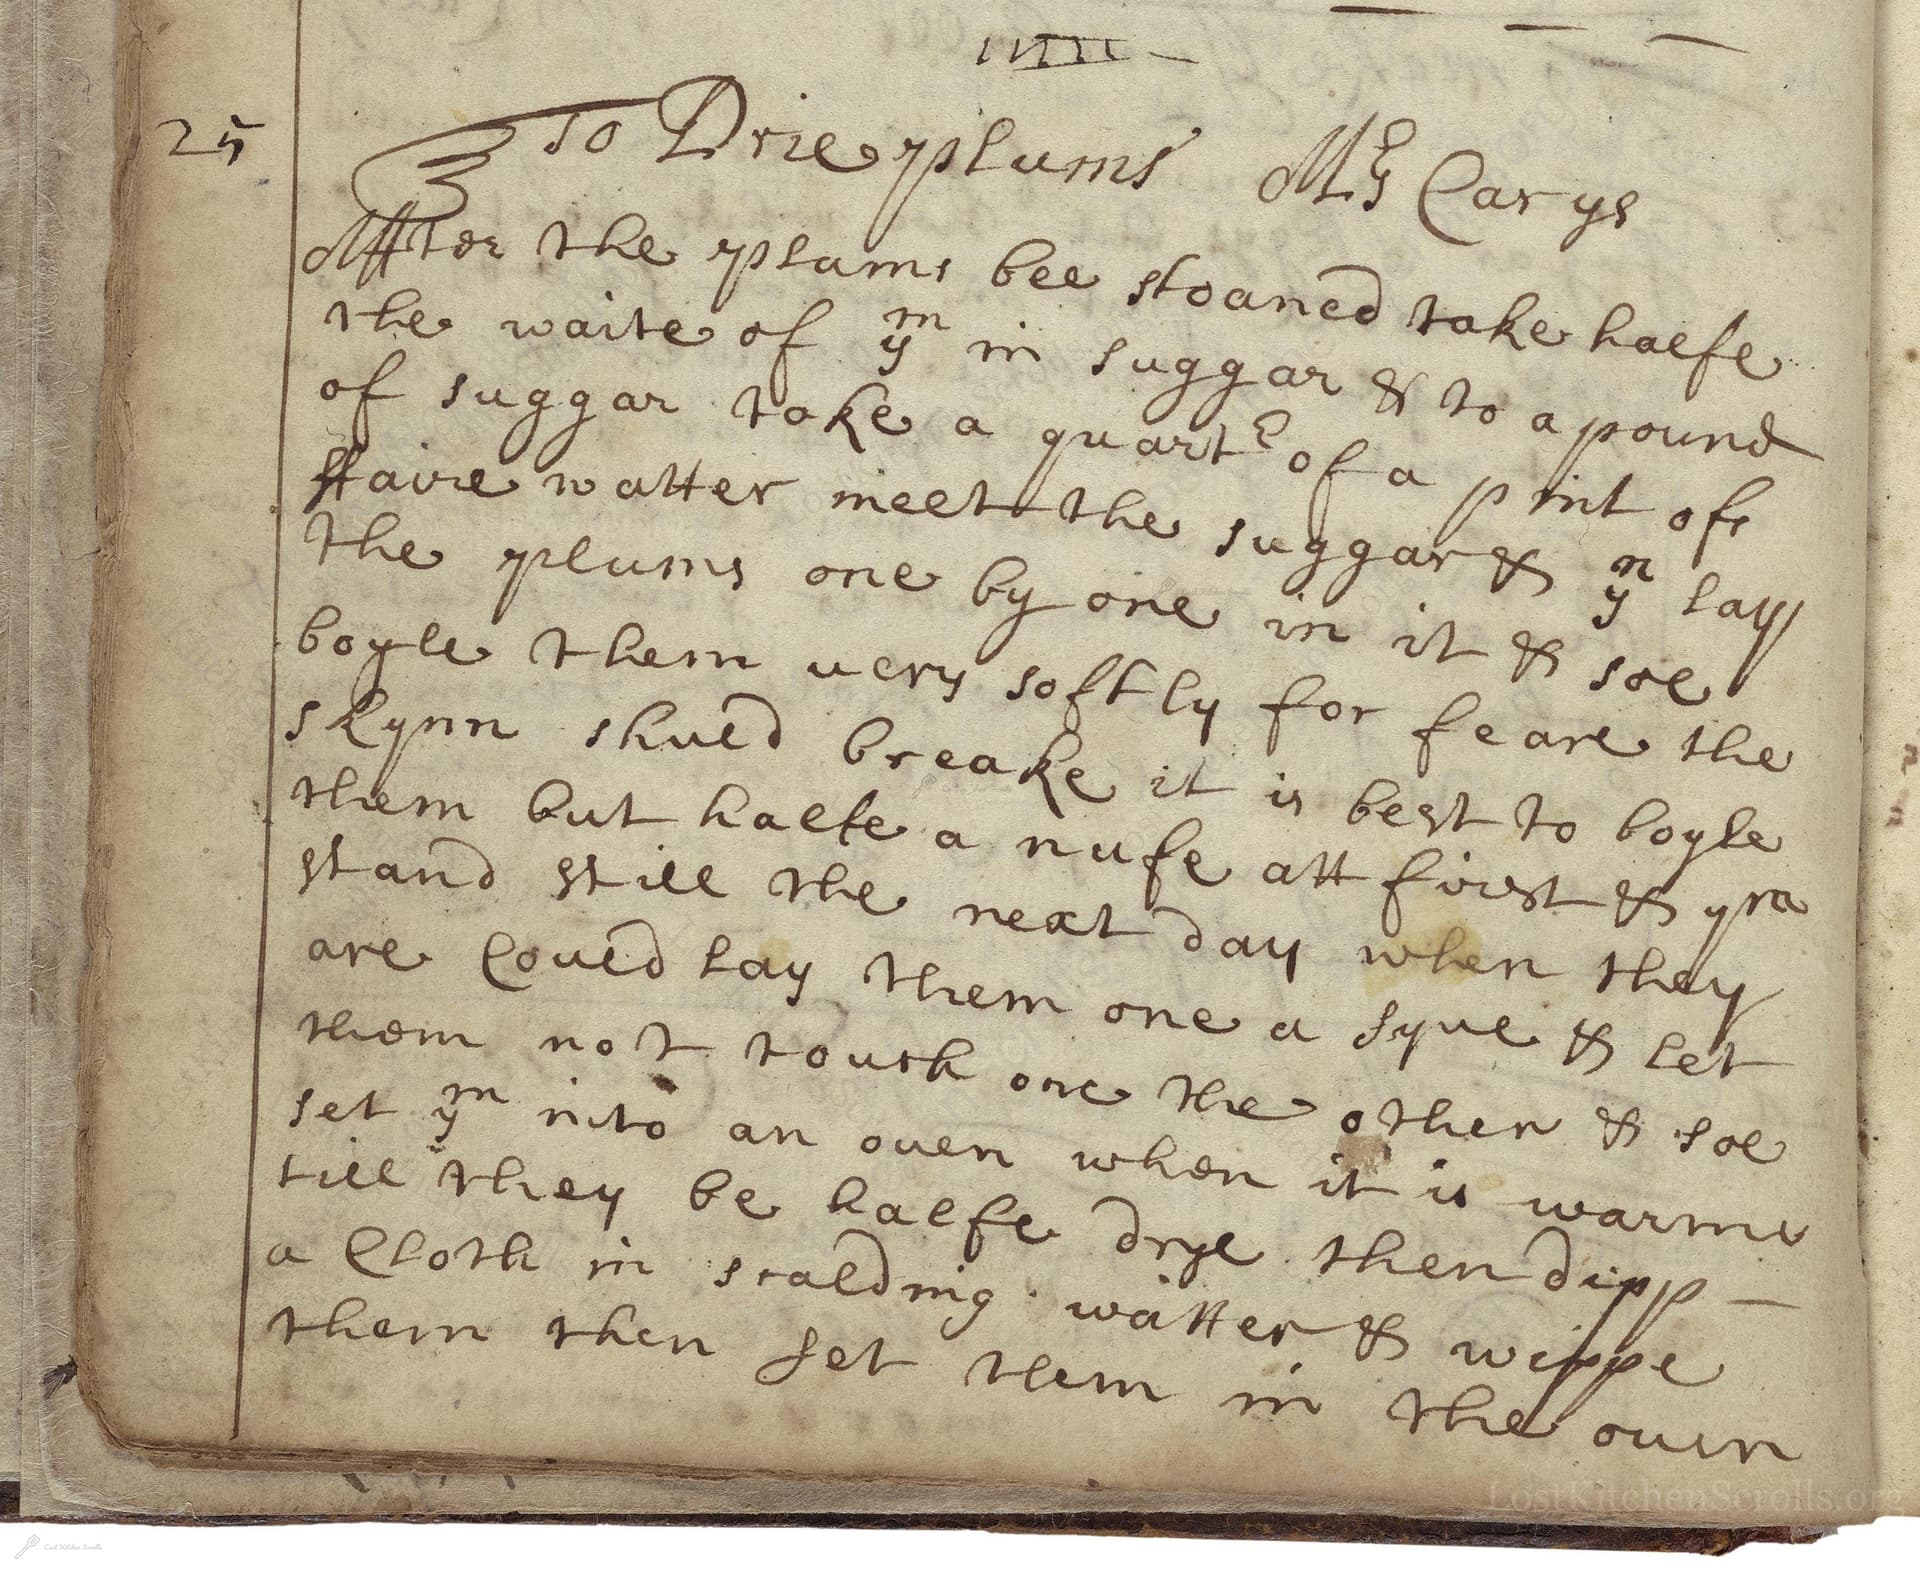 25
To Drie plums Mrs Carys
After the plums bee stoaned take halfe
the waite of ym in suggar & to a pound
of suggar take a quartr of a pint of
ffaire watter meelt the suggar & yn lay
the plums one by one in it & soe
boyle them uery softly for feare the
skynn shued breake it is best to boyle
them but halfe a nufe att first &
stand still the next day when they
are Coued lay them one a syue & let
them not touch one the other & soe
set ym into an ouen when it is warme
till they be halfe drye then dipp
a Cloth in scalding watter & wippe
them then set them in the ouen
LostKitchenScrolls.org
Lost Kitchen Scrolls